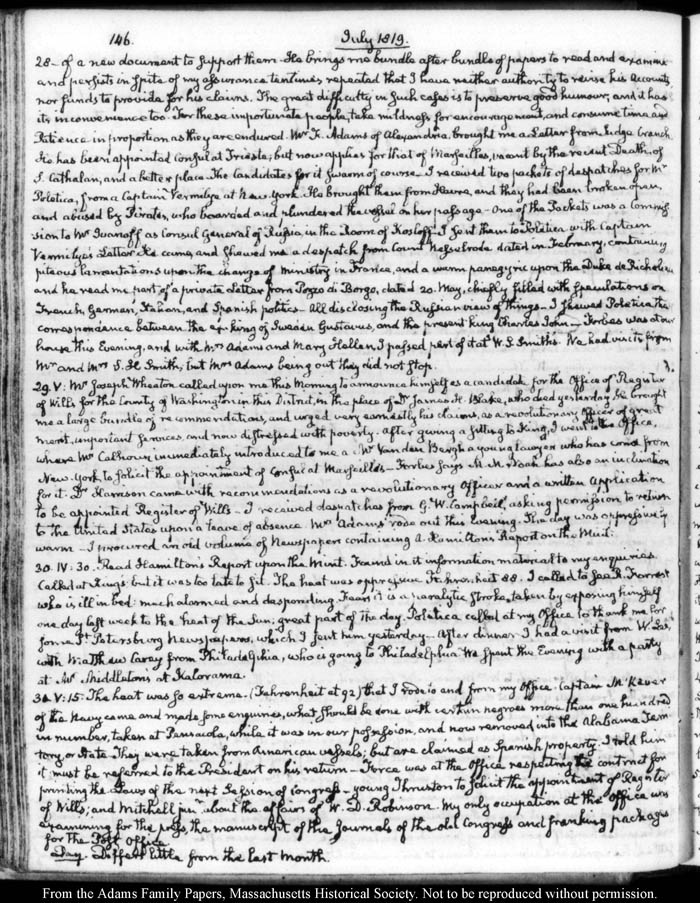 146.
July 1819.
28— of a new document to support them. He brings me bundle after bundle of papers to read and examine
and persists in spite of my assurance ten times repeated that I have neither authority to revise his accounts,
nor funds to provide for his claims. The great difficulty in such cases is to preserve good humour, and it has
its inconvenience too. For these importunate people, take mildness for encouragement, and consume time and
Patience in proportion as they are endured. Mr F. Adams of Alexandria, brought me a Letter from Judge Cranch
He has been appointed Consul at Trieste; but now applies for that of Marseilles, vacant by the recent Death of
S. Cathalan, and a better place. The Candidates for it swarm of course. I received two packets of despatches for Mr
Poletica, from a Captain Vermilye at New-York. He brought them from Havre, and they had been broken open,
and abused by Pirates, who boarded and plundered the vessel on her passage— One of the Packets was a Commis-
sion to Mr Ivanoff as Consul General of Russia in the Room of Kosloff. I sent them to Poletica with Captain
Vermilye's Letter. He came, and shewed me a despatch from Count Nesselrode dated in February, containing
piteous lamentations upon the change of Ministry in France, and a warm panegyric upon the Duke de Richelieu
and he read me part of a private Letter from Pozzo di Borgo, dated 20. May, chiefly filled with speculations on
French, German, Italian, and Spanish politics— All disclosing the Russian view of things.— I shewed Poletica the
correspondence between the ex-king of Sweden Gustavus, and the present king Charles John— Forbes was at our
house this Evening, and with Mrs Adams and Mary Hellen, I passed part of it at W. S. Smith's. We had visits from
Mr and Mrs S. H. Smith, but Mrs Adams being out they did not stop.
29. V: Mr Joseph Wheaton called upon me this Morning to announce himself as a candidate for the Office of Register
of Wills for the County of Washington in this District, in the place of Dr James H. Blake, who died yesterday. He brought
me a large bundle of recommendations, and urged very earnestly his claims, as a revolutionary officer of great
merit, important services, and now distressed with poverty. After giving a sitting to King, I went to the Office,
where Mr Calhoun immediately introduced to me a Mr Van den Bergh a young lawyer who has come from
New-York, to solicit the appointment of Consul at Marseilles— Forbes says M. M. Noah has also an inclination
for it. Dr Harrison came with recommendations as a revolutionary Officer and a written application
to be appointed Register of Wills— I received despatches from G. W. Campbell, asking permission to return
to the United States upon a leave of absence. Mrs Adams rose out this Evening. The day was oppressively
warm— I procured an old volume of Newspapers containing A. Hamilton's Report on the Mint.
30. IV: 30. Read Hamilton's Report upon the Mint. Found in it information material to my enquiries.
Called at King's but it was too late to sit. The heat was oppressive Fahrenheit 88. I called to see R. Forrest
who is ill in bed: much alarmed and desponding. Fears it is a paralytic stroke, taken by exposing himself
one day last week to the heat of the Sun, great part of the day. Poletica called at my Office to thank me for
some St Petersburg Newspapers, which I sent him yesterday— After dinner I had a visit from W. Lee,
with Matthew Carey from Philadelphia, who is going to Philadelphia. We spent the Evening with a party
at Mr Middleton's at Kalorama.
31. V: 15. The heat was so extreme. (Fahrenheit at 92) that I rode to and from my Office. Captain McKever
of the Navy came and made some enquiries, what should be done with certain negroes more than one hundred
in number, taken at Pensacola, while it was in our possession, and now removed into the Alabama Terri-
tory, or State. They were taken from American vessels; but are claimed as Spanish property. I told him
it must be referred to the President on his return— Force was at the Office respecting the contract for
printing the Laws of the next Session of Congress— young Thruston to solicit the appointment of Register
of Wills; and Mitchell junr about the affairs of W. D. Robinson. My only occupation at the Office was
examining for the press, the manuscript of the Journals of the old Congress and franking packages
for the Post office
Day. Differs little from the last month.
From the Adams Family Papers, Massachusetts Historical Society. Not to be reproduced without permission.